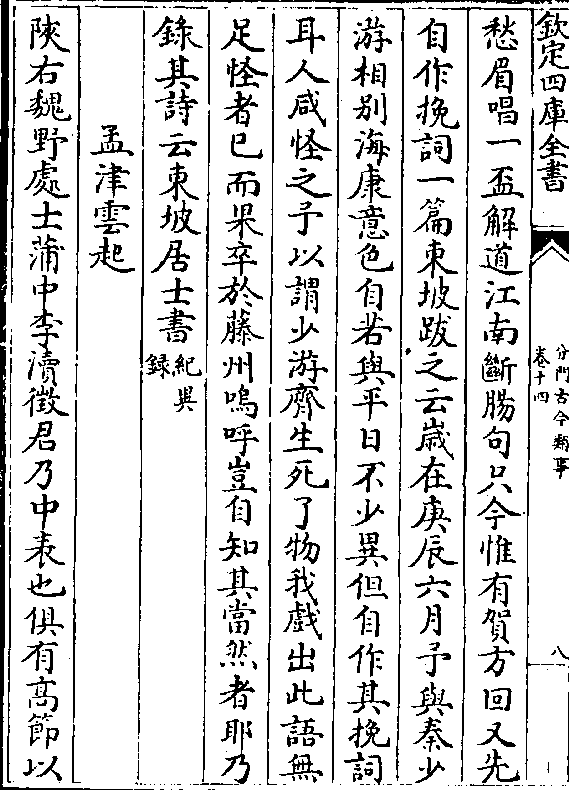 欽定四庫全書
分門古今類事
卷十四
八
愁眉唱一盃解道江南斷腸句只今惟有賀方回又先
自作挽詞一篇東坡跋之云歳在庚辰六月予與秦少
游相别海康意色自若與平日不少異但自作其挽詞
耳人咸怪之予以謂少游齊生死了物我戲出此語無
足怪者已而果卒於藤州嗚呼豈自知其當然者耶乃
錄其詩云東坡居士書紀異
錄
孟津雲起
陜右魏野處士蒲中李瀆徵君乃中表也俱有高節以